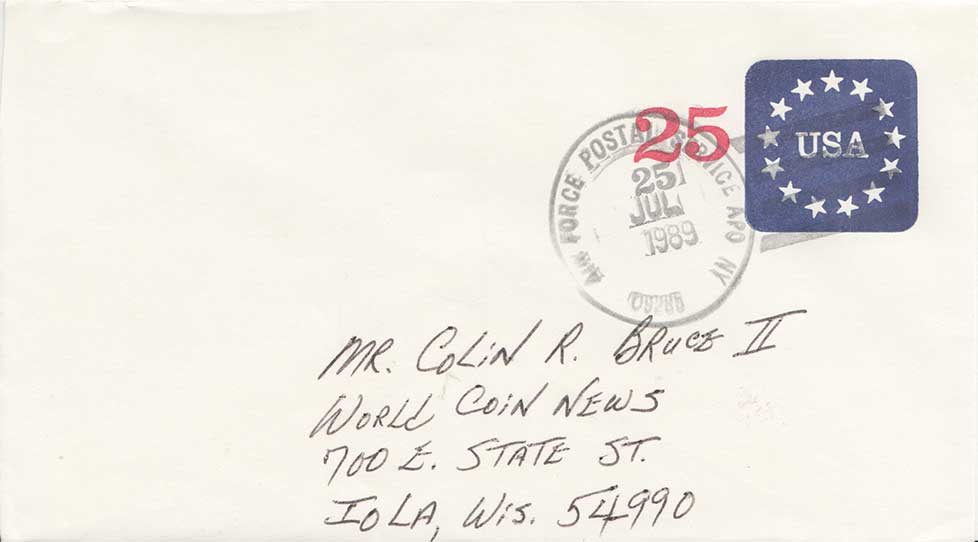 25
USA
AIR FORCE POSTAL SERVICE APO NY
25
JUL
1989
MR. COLIN R. BRUCE II
WORLD COIN NEWS
700 E. STATE ST.
IOLA, WIS. 54990